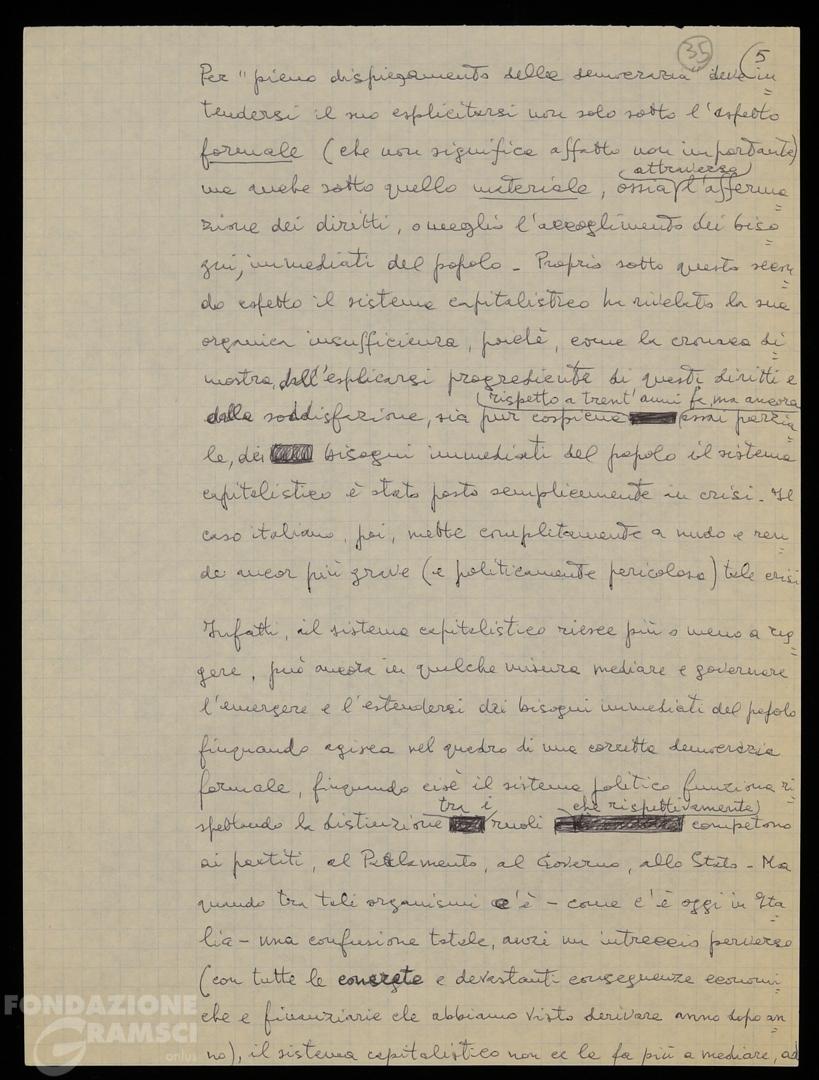 35
5
Per "pieno dispiegamento della democrazia" deve in
tendersi il suo esplicitarsi non solo sotto l'aspetto
formale (che non significa affatto non importante)
ma anche sotto quello materiale, ossia attraverso l'afferma
zione dei diritti, o meglio l'accoglimento dei biso
gni, immediati del popolo - Proprio sotto questo secon
do aspetto il sistema capitalistico ha rivelato la sua
organica insufficienza, poichè, come la cronaca di
mostra, dall'esplicarsi progrediente di questi diritti e
dalla soddisfazione, sia pur cospicua rispetto a trent'anni fa, ma ancora assai parzia
le, dei bisogni immediati del popolo il sistema
capitalistico è stato posto semplicemente in crisi - Il
caso italiano, poi, mette completamente a nudo e ren
de ancor più grave (e politicamente pericolosa) tale crisi
Infatti, il sistema capitalistico riesce più o meno a reg
gere, può ancora in qualche misura mediare e governare
l'emergere e l'estendersi dei bisogni immediati del popolo
finquando agisca nel quadro di una corretta democrazia
formale, finquando cioè il sistema politico funziona ri
spettando la distinzione tra i ruoli che rispettivamente competono
ai partiti, al Parlamento, al Governo, allo Stato - Ma
quando tra tali organismi c'è - come c'è oggi in Ita
lia - una confusione totale, anzi un intreccio perverso
(con tutte le concrete e devastanti conseguenze economi
che e finanziarie che abbiamo visto derivare anno dopo an
no), il sistema capitalistico non ce la fa più a mediare, ad
FONDAZIONE
GRAMSCI
onlus